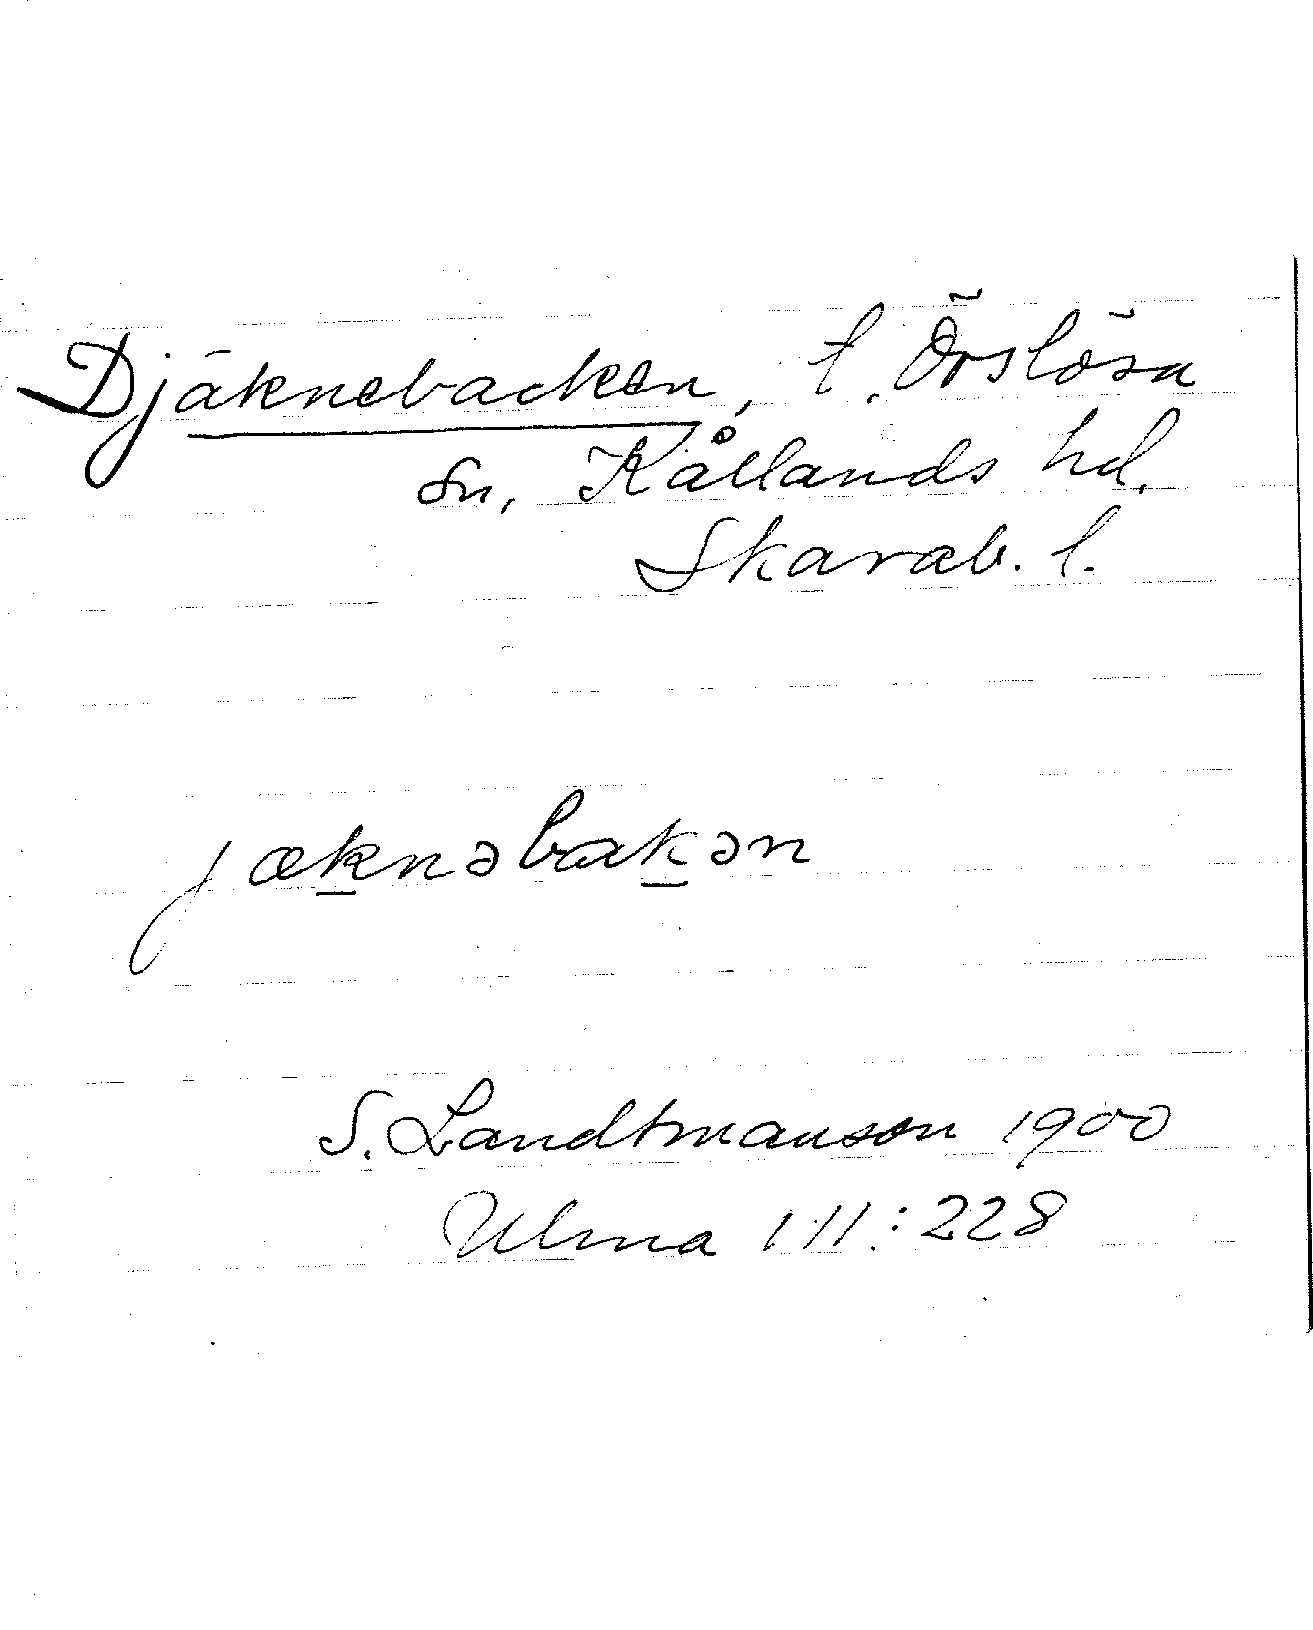 Djäknebacken, t. Örslösa
sn, Kållands hd.
Skarab. l.
jæknəbakən
S. Landtmanson 1900
Ulma 111:228